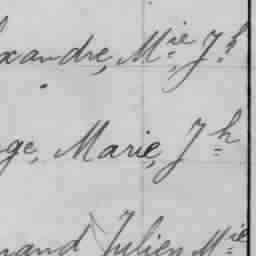 xandre, M.ie J.h
ge, Marie, J.h
nand Julien M.ie